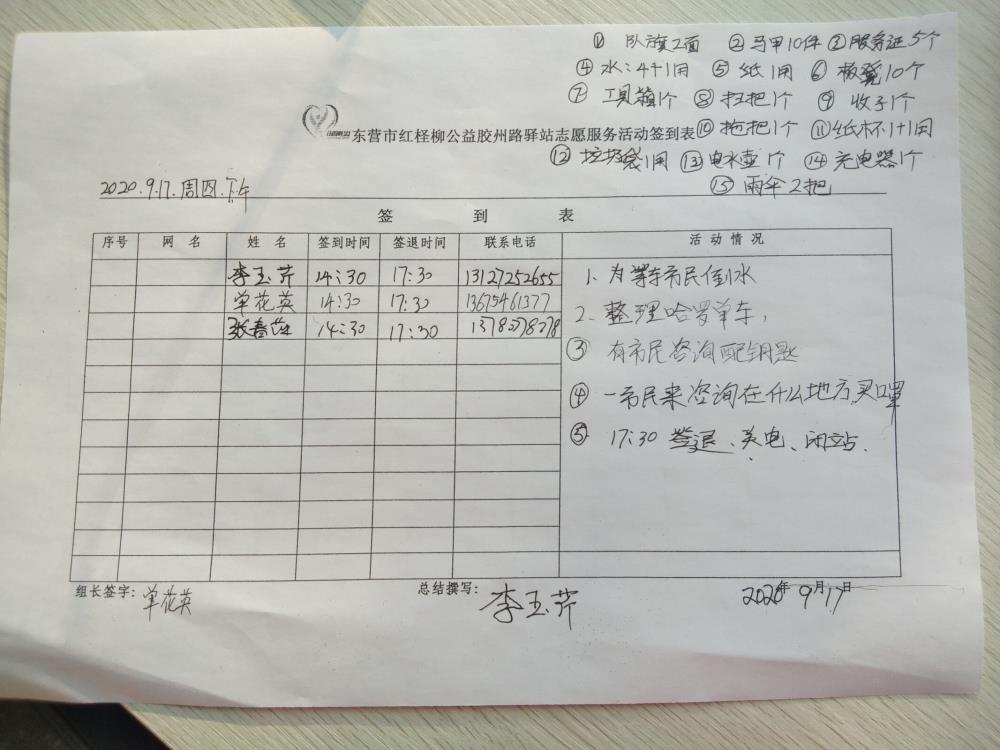 ① 队旗2面 ②马甲10件 ③服务证5个
④水:4+1用 ⑤纸1用 ⑥板凳10个
⑦ 工具箱1个 ⑧扫把1个 ⑨ 收子1个
东营市红柽柳公益胶州路驿站志愿服务活动签到表 ⑩拖把1个 ⑪纸杯1+1用
⑫垃圾袋1用 ⑬电水壶1个 ⑭充电器1个
2020.9.17.周四.下午 ⑮雨伞2把
签 到 表
序号 网 名 姓 名 签到时间 签退时间 联系电话 活动情况
李玉芹 14:30 17:30 13127252655
单花英 14:30 17:30 13675461377
14:30 17:30
1. 为等车市民倒水
2、整理哈罗单车,
③ 有市民咨询配钥匙
④ 一市民来咨询在什么地方买口罩
⑤ 17:30 签退、关电、闭站.
组长签字: 单花英 总结撰写: 李玉芹 2020年9月17日